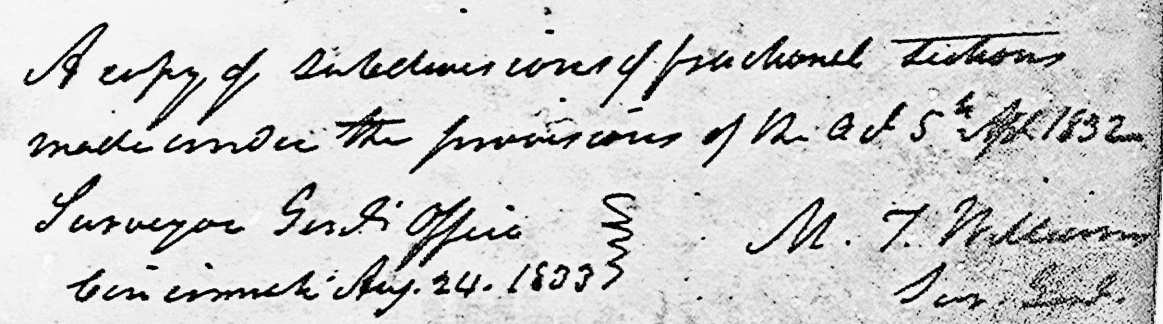 A copy of Subdivisions of fractional Sections
made under the provisions of the Act 5th Apl. 1832
Surveyor Genl's Office
Cincinnati Aug. 24. 1833
M. T. Williams
Sur. Genl.